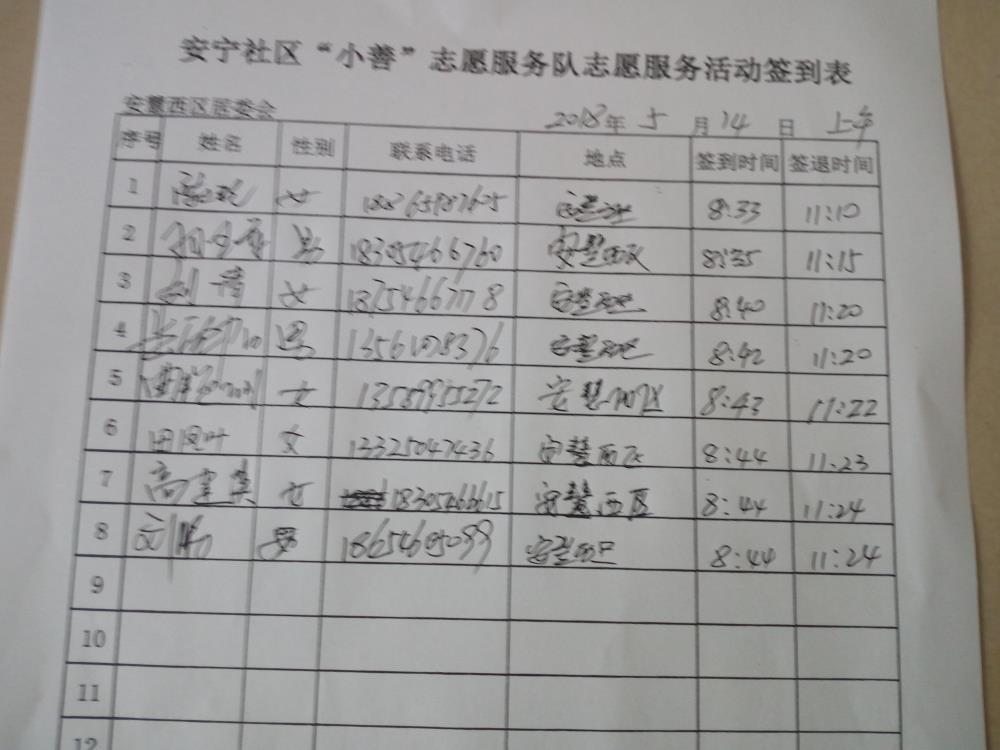 安宁社区“小善”志愿服务队志愿服务活动签到表
安慧西区居委会 2018年 5 月 14 日 上午
序号 姓名 性别 联系电话 地点 签到时间 签退时间
1 女 8:33 11:10
2 男 18305466760 安慧西区 8:35 11:15
3 女 安慧西区 8:40 11:20
4 男 安慧西区 8:42 11:20
5 女 13589955272 安慧西区 8:43 11:22
6 田凤叶 女 13325047436 安慧西区 8:44 11:23
7 女 18305466615 安慧西区 8:44 11:24
8 男 安慧西区 8:44 11:24
9
10
11
12